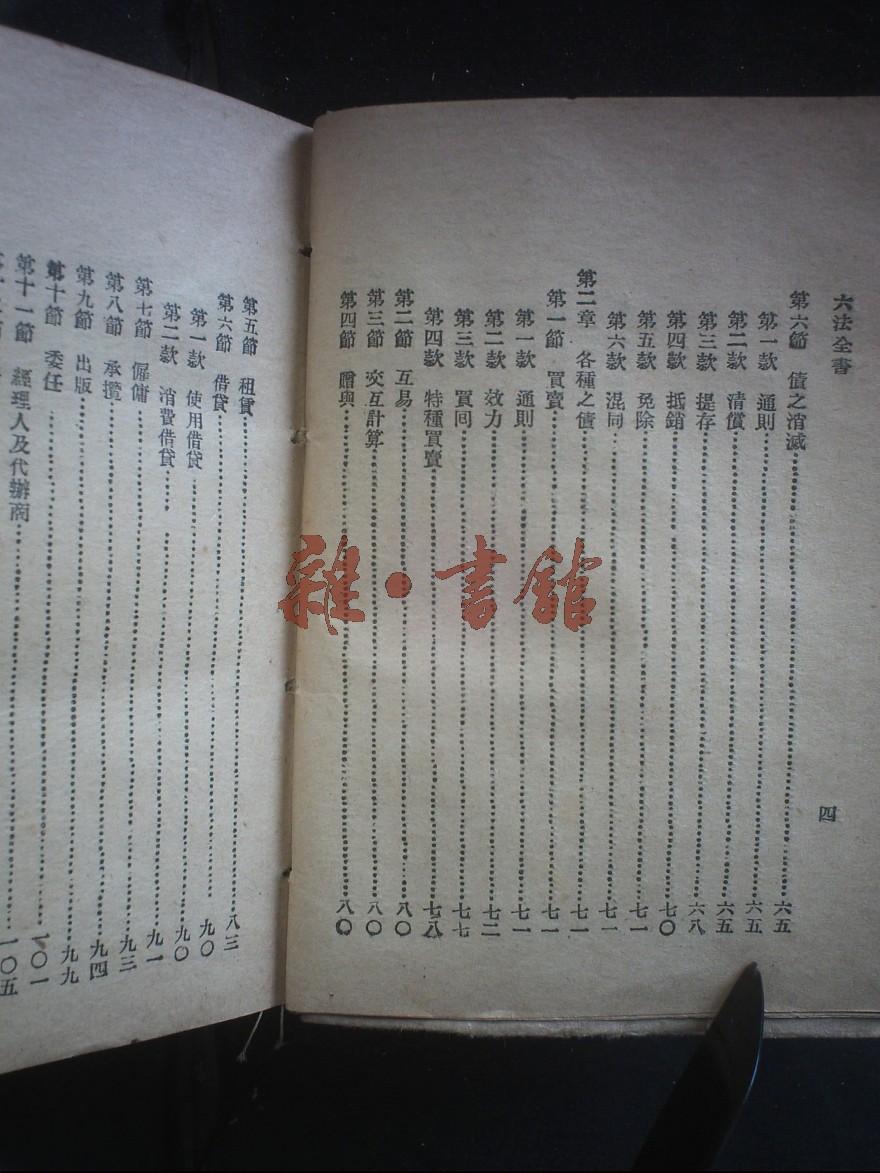 六法全書 四
第六節 債之消滅……六五
第一款 通則……六五
第二款 清償……六五
第三款 提存……六八
第四款 抵銷……七〇
第五款 免除……七一
第六款 混同……七一
第二章 各種之債……七一
第一節 買賣……七一
第一款 通則……七一
第二款 效力……七二
第三款 買回……七七
第四款 特種買賣……七八
第二節 互易……八〇
第三節 交互計算……八〇
第四節 贈與……八〇
第五節 租賃……八三
第六節 借貸……九〇
第一款 使用借貸……九〇
第二款 消費借貸……九一
第七節 僱傭……九三
第八節 承攬……九四
第九節 出版……九九
第十節 委任……一〇一
第十一節 經理人及代辦商……一〇五
雜·書館